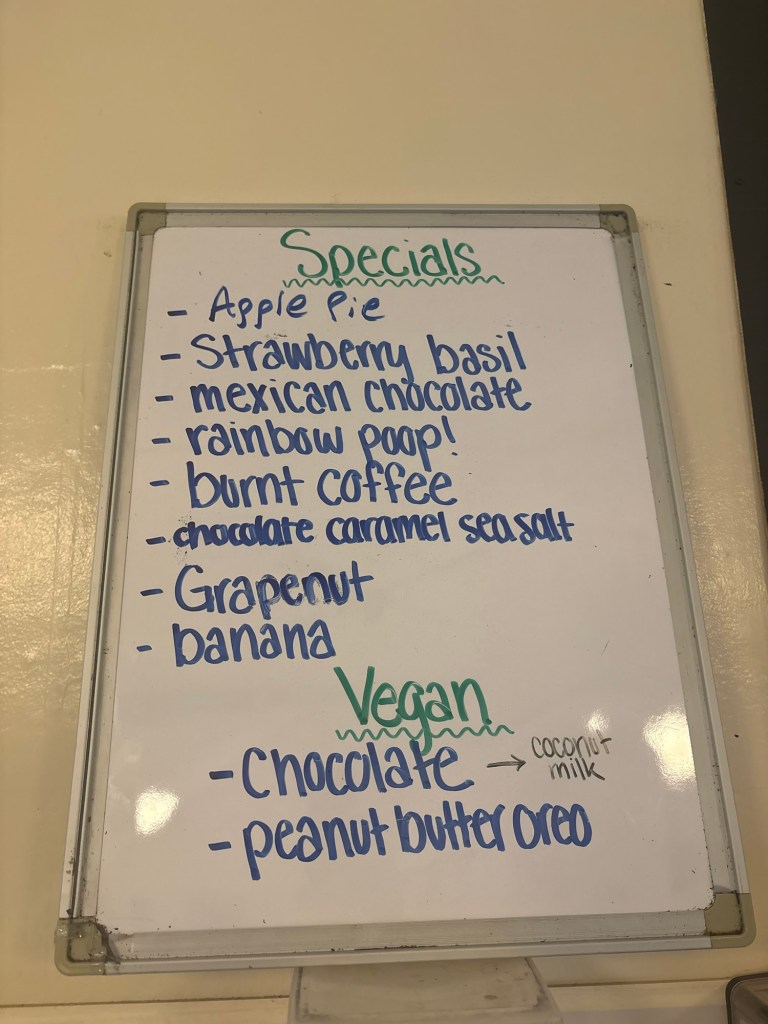 Specials
- Apple Pie
- Strawberry basil
- mexican chocolate
- rainbow poop!
- burnt coffee
- chocolate caramel sea salt
- Grapenut
- banana
Vegan
- Chocolate → coconut milk
- peanut butter oreo